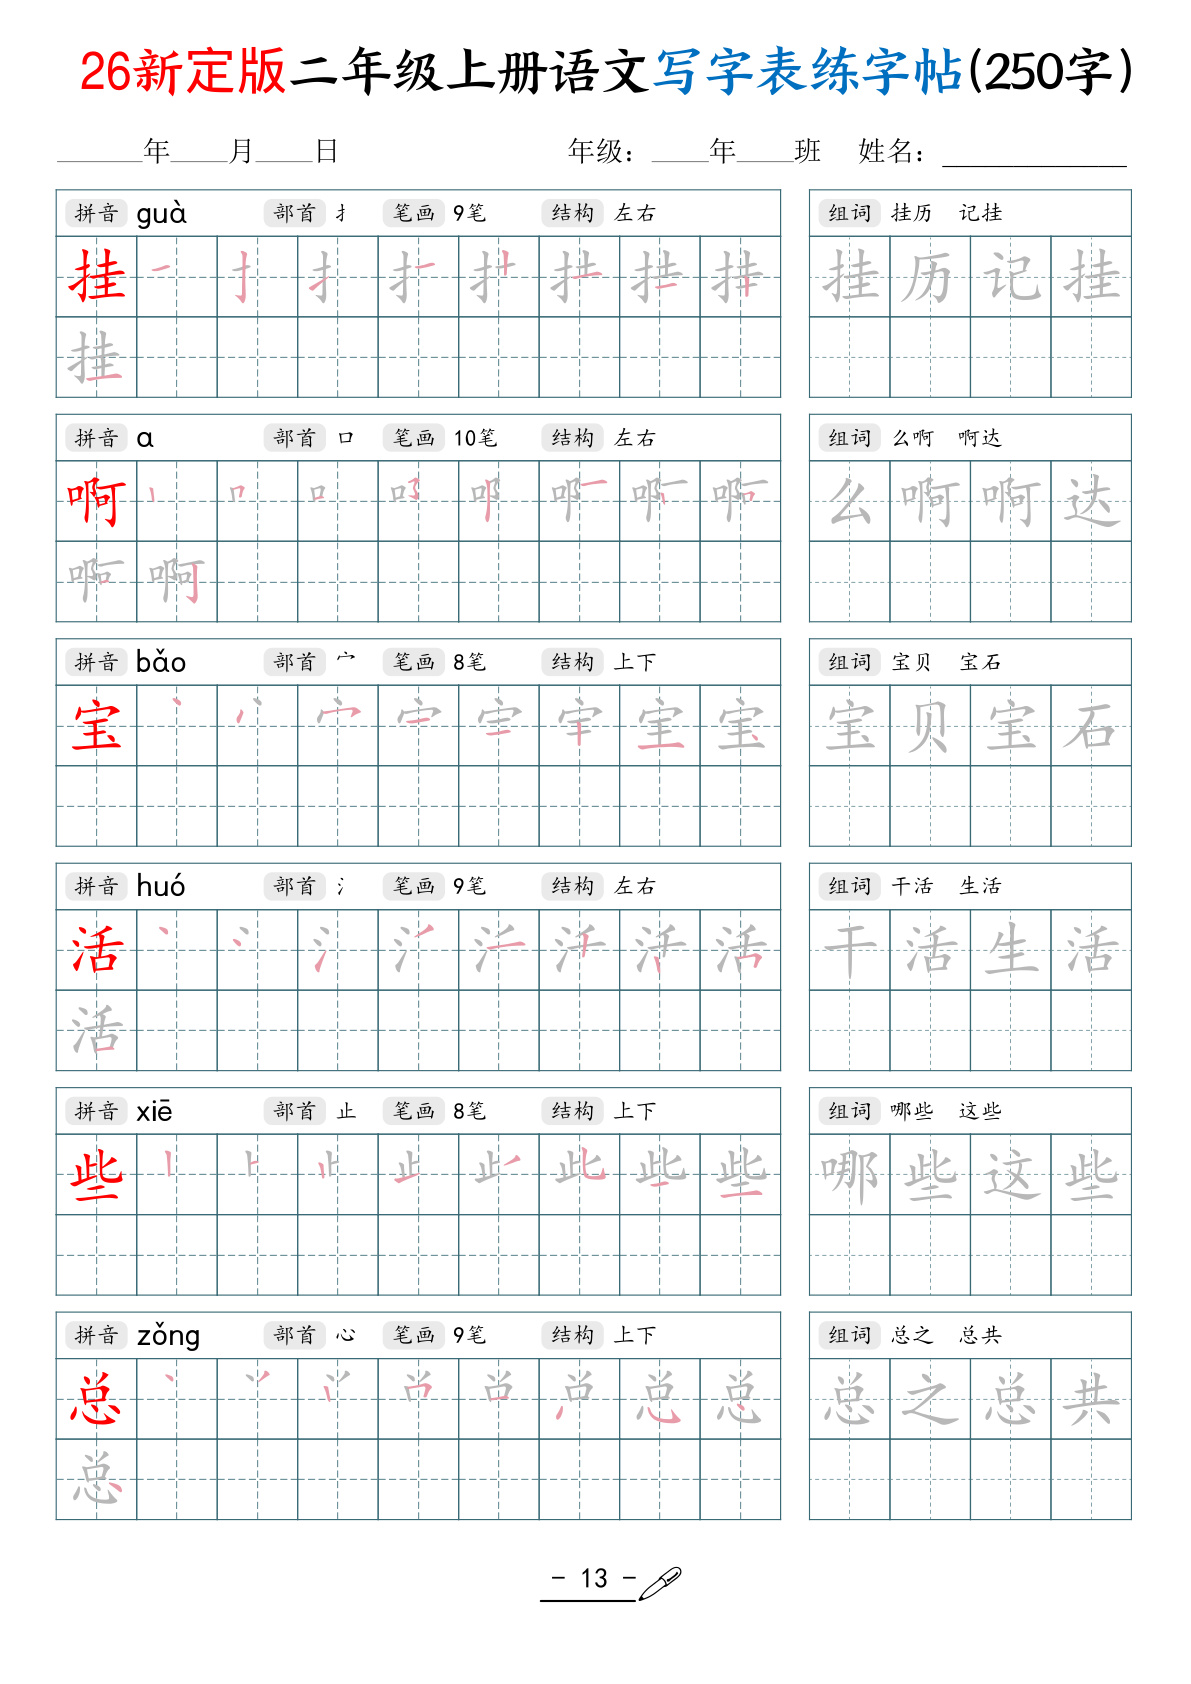 26新定版二年级上册语文写字表练字帖(250字)
______年____月____日 年级：____年____班 姓名：_____________
拼音 guà 部首 扌 笔画 9笔 结构 左右 组词 挂历 记挂
挂 挂历记挂
拼音 ɑ 部首 口 笔画 10笔 结构 左右 组词 么啊 啊达
啊 么啊啊达
啊
拼音 bǎo 部首 宀 笔画 8笔 结构 上下 组词 宝贝 宝石
宝 宝 宝贝宝石
拼音 huó 部首 氵 笔画 9笔 结构 左右 组词 干活 生活
活 干活生活
活
拼音 xiē 部首 止 笔画 8笔 结构 上下 组词 哪些 这些
些 些 哪些这些
拼音 zǒng 部首 心 笔画 9笔 结构 上下 组词 总之 总共
总 总之总共
总
- 13 -